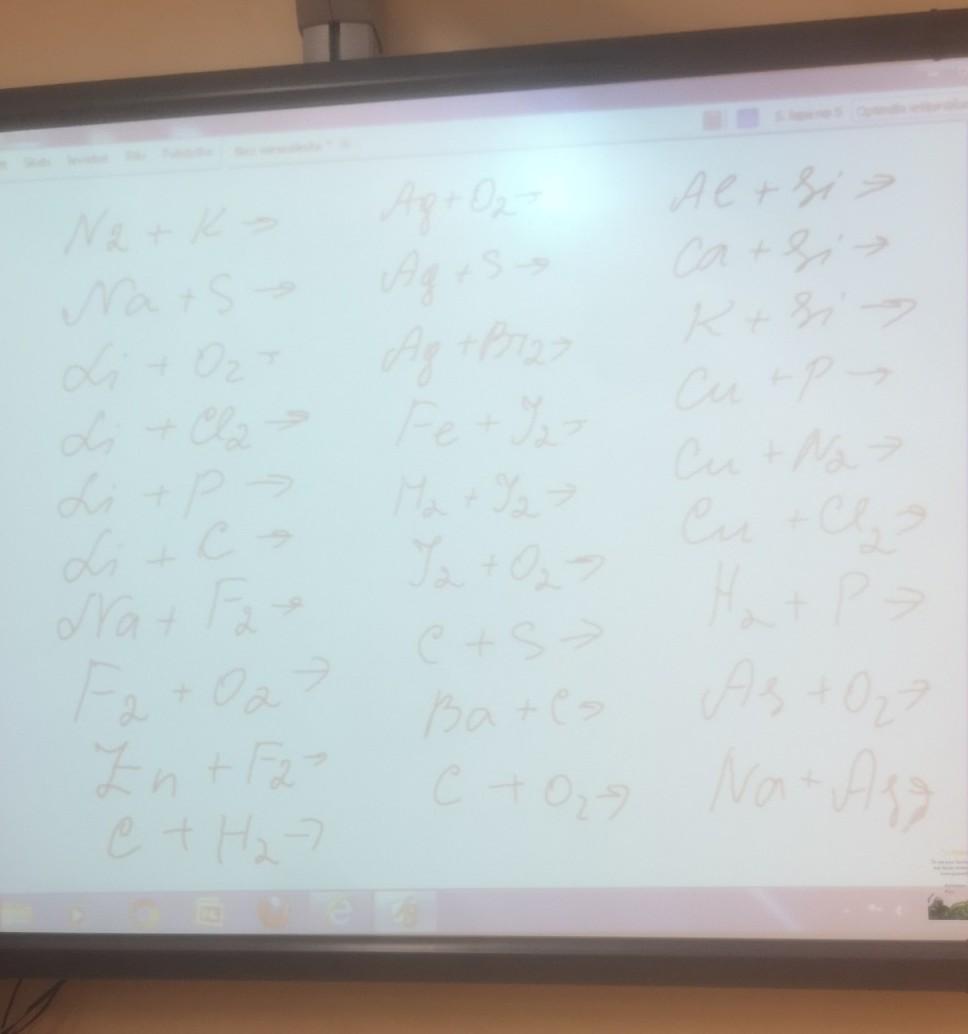 N2 + K →
Na + S →
Li + O2 →
Li + Cl2 →
Li + P →
Li + C →
Na + F2 →
F2 + O2 →
Zn + F2 →
C + H2 →
Ag + O2 →
Ag + S →
Ag + Br2 →
Fe + J2 →
H2 + J2 →
J2 + O2 →
C + S →
Ba + C →
C + O2 →
Al + Si →
Ca + Si →
K + Si →
Cu + P →
Cu + N2 →
Cu + Cl2 →
H2 + P →
As + O2 →
Na + As →